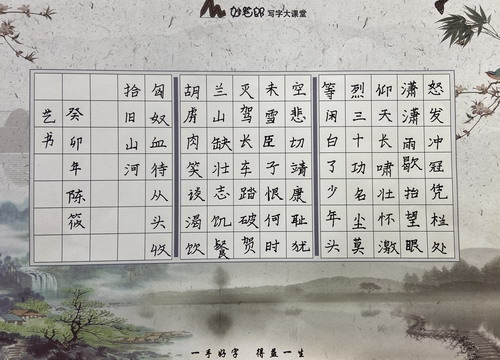 写字大课堂
怒发冲冠凭栏处
潇潇雨歇抬望眼
仰天长啸壮怀激
烈三十功名尘莫
等闲白了少年头
空悲切靖康耻犹
未雪臣子恨何时
灭驾长车踏破贺
兰山缺壮志饥餐
胡虏肉笑谈渴饮
匈奴血待从头收
拾旧山河
癸卯年陈筱
艺书
一手好字 得益一生